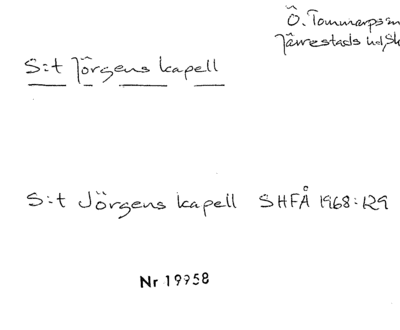 Ö. Tommarps sn
Järrestads hd, Sk
S:t Jörgens kapell
S:t Jörgens kapell SHFÅ 1968:129
Nr 19958